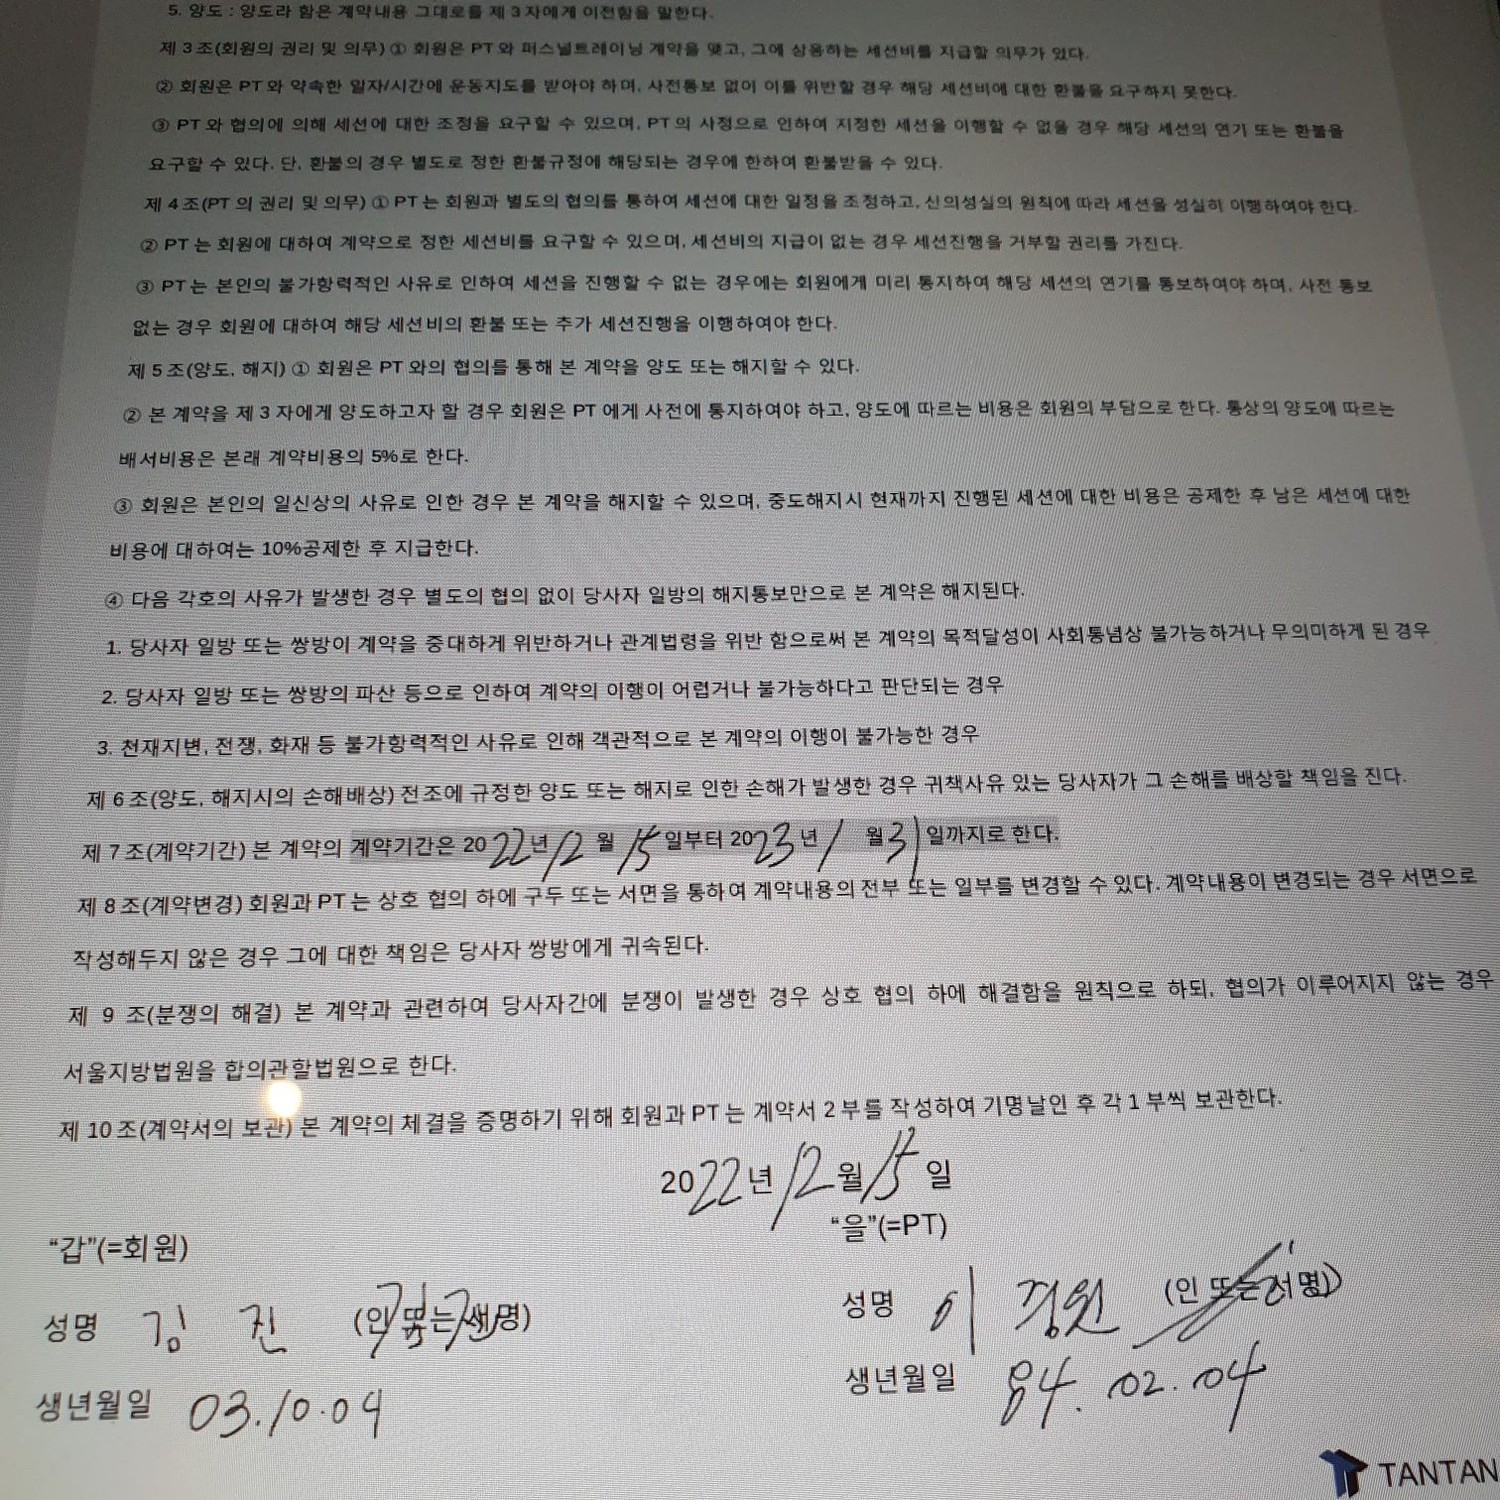 5. 양도 : 양도라 함은 계약내용 그대로를 제 3 자에게 이전함을 말한다.
제 3 조(회원의 권리 및 의무) ① 회원은 PT 와 퍼스널트레이닝 계약을 맺고, 그에 상응하는 세션비를 지급할 의무가 있다.
② 회원은 PT 와 약속한 일자/시간에 운동지도를 받아야 하며, 사전통보 없이 이를 위반할 경우 해당 세션비에 대한 환불을 요구하지 못한다.
③ PT 와 협의에 의해 세션에 대한 조정을 요구할 수 있으며, PT 의 사정으로 인하여 지정한 세션을 이행할 수 없을 경우 해당 세션의 연기 또는 환불을
요구할 수 있다. 단, 환불의 경우 별도로 정한 환불규정에 해당되는 경우에 한하여 환불받을 수 있다.
제 4 조(PT 의 권리 및 의무) ① PT 는 회원과 별도의 협의를 통하여 세션에 대한 일정을 조정하고, 신의성실의 원칙에 따라 세션을 성실히 이행하여야 한다.
② PT 는 회원에 대하여 계약으로 정한 세션비를 요구할 수 있으며, 세션비의 지급이 없는 경우 세션진행을 거부할 권리를 가진다.
③ PT 는 본인의 불가항력적인 사유로 인하여 세션을 진행할 수 없는 경우에는 회원에게 미리 통지하여 해당 세션의 연기를 통보하여야 하며, 사전 통보
없는 경우 회원에 대하여 해당 세션비의 환불 또는 추가 세션진행을 이행하여야 한다.
제 5 조(양도, 해지) ① 회원은 PT 와의 협의를 통해 본 계약을 양도 또는 해지할 수 있다.
② 본 계약을 제 3 자에게 양도하고자 할 경우 회원은 PT 에게 사전에 통지하여야 하고, 양도에 따르는 비용은 회원의 부담으로 한다. 통상의 양도에 따르는
배서비용은 본래 계약비용의 5%로 한다.
③ 회원은 본인의 일신상의 사유로 인한 경우 본 계약을 해지할 수 있으며, 중도해지시 현재까지 진행된 세션에 대한 비용은 공제한 후 남은 세션에 대한
비용에 대하여는 10%공제한 후 지급한다.
④ 다음 각호의 사유가 발생한 경우 별도의 협의 없이 당사자 일방의 해지통보만으로 본 계약은 해지된다.
1. 당사자 일방 또는 쌍방이 계약을 중대하게 위반하거나 관계법령을 위반 함으로써 본 계약의 목적달성이 사회통념상 불가능하거나 무의미하게 된 경우
2. 당사자 일방 또는 쌍방의 파산 등으로 인하여 계약의 이행이 어렵거나 불가능하다고 판단되는 경우
3. 천재지변, 전쟁, 화재 등 불가항력적인 사유로 인해 객관적으로 본 계약의 이행이 불가능한 경우
제 6 조(양도, 해지시의 손해배상) 전조에 규정한 양도 또는 해지로 인한 손해가 발생한 경우 귀책사유 있는 당사자가 그 손해를 배상할 책임을 진다.
제 7 조(계약기간) 본 계약의 계약기간은 2022년 12월 15일부터 2023년 1월 31일까지로 한다.
제 8 조(계약변경) 회원과 PT 는 상호 협의 하에 구두 또는 서면을 통하여 계약내용의 전부 또는 일부를 변경할 수 있다. 계약내용이 변경되는 경우 서면으로
작성해두지 않은 경우 그에 대한 책임은 당사자 쌍방에게 귀속된다.
제 9 조(분쟁의 해결) 본 계약과 관련하여 당사자간에 분쟁이 발생한 경우 상호 협의 하에 해결함을 원칙으로 하되, 협의가 이루어지지 않는 경우
서울지방법원을 합의관할법원으로 한다.
제 10 조(계약서의 보관) 본 계약의 체결을 증명하기 위해 회원과 PT 는 계약서 2 부를 작성하여 기명날인 후 각 1 부씩 보관한다.
2022년 12월 15일
"갑"(=회원) "을"(=PT)
성명 김 진 (인 또는 서명) 성명 이 경원 (인 또는 서명)
생년월일 03.10.04 생년월일 84.02.04
TANTAN